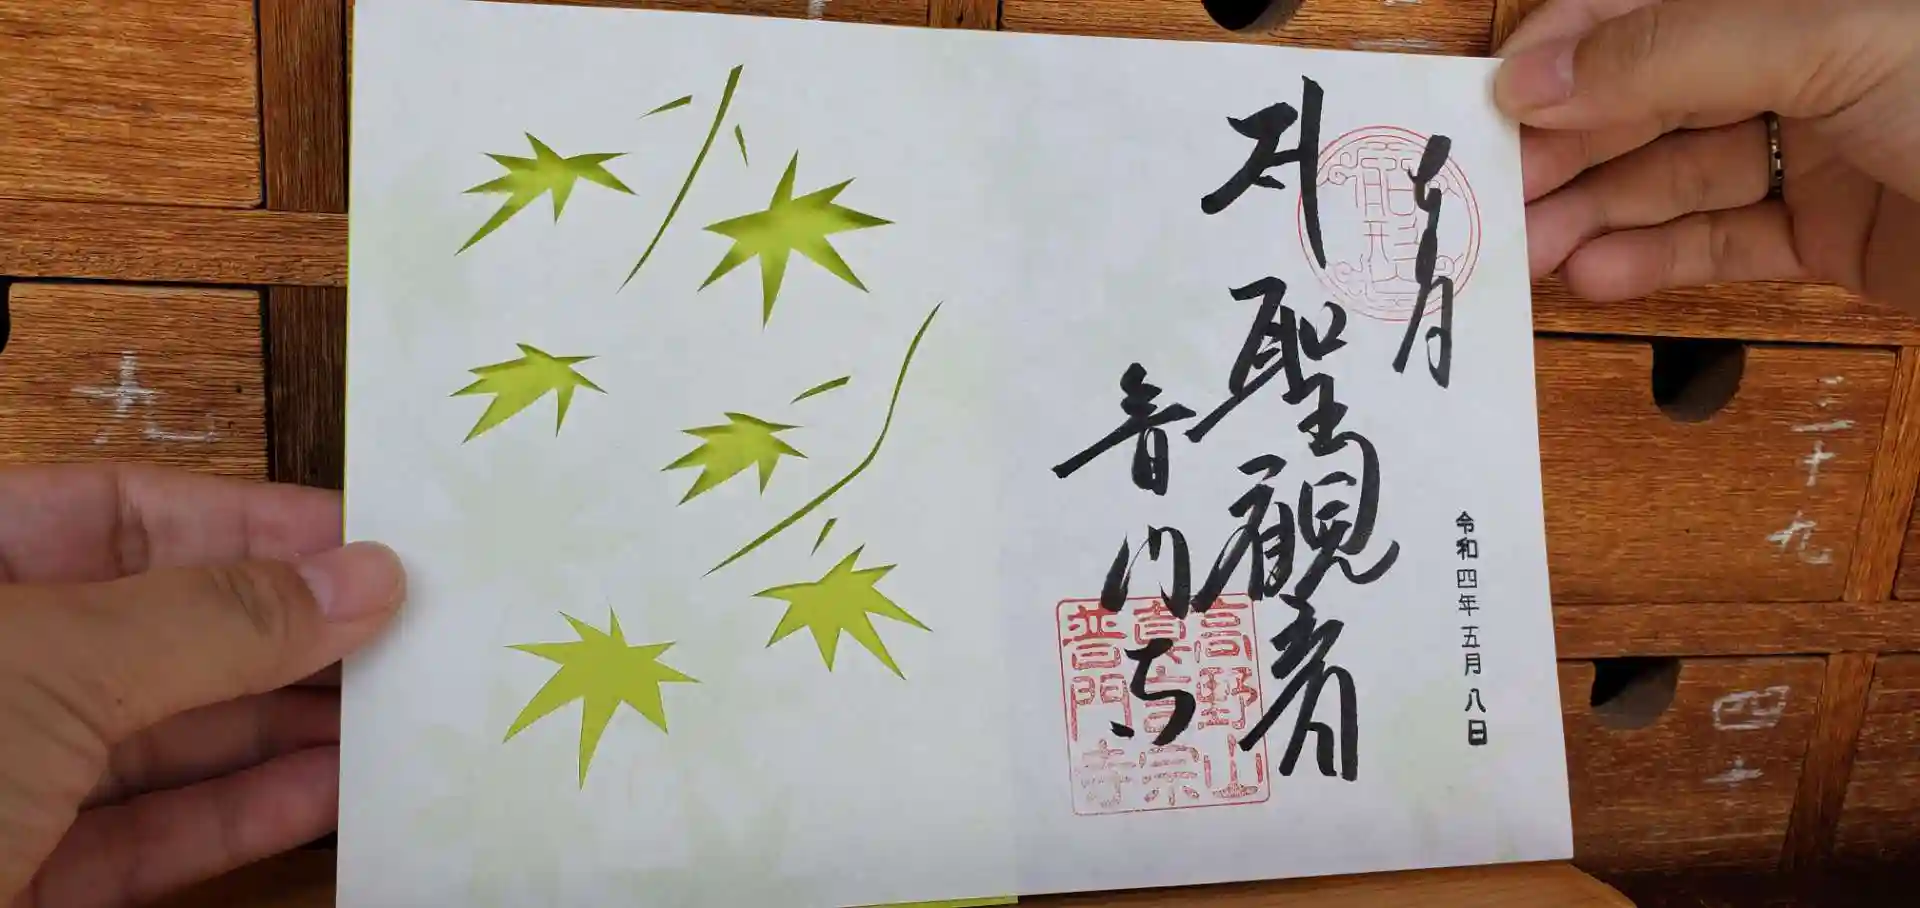 令和四年五月八日
聖観音
普門寺
高野山
真言宗
普門寺
九
三十九
四十